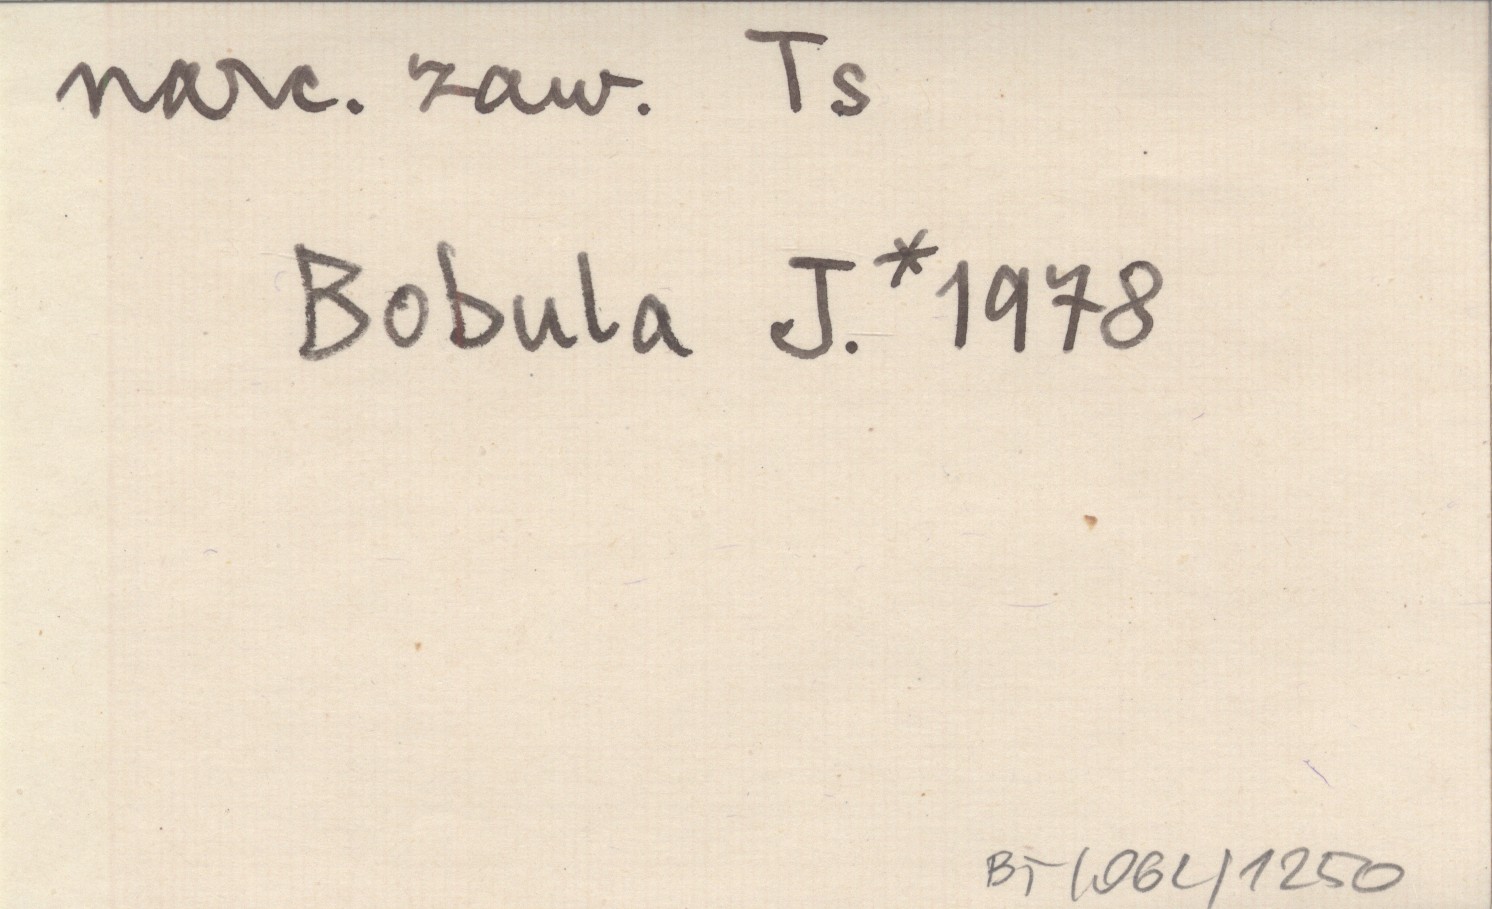 narc. zaw. Ts
Bobula J.*1978
BT-(OGL)1250